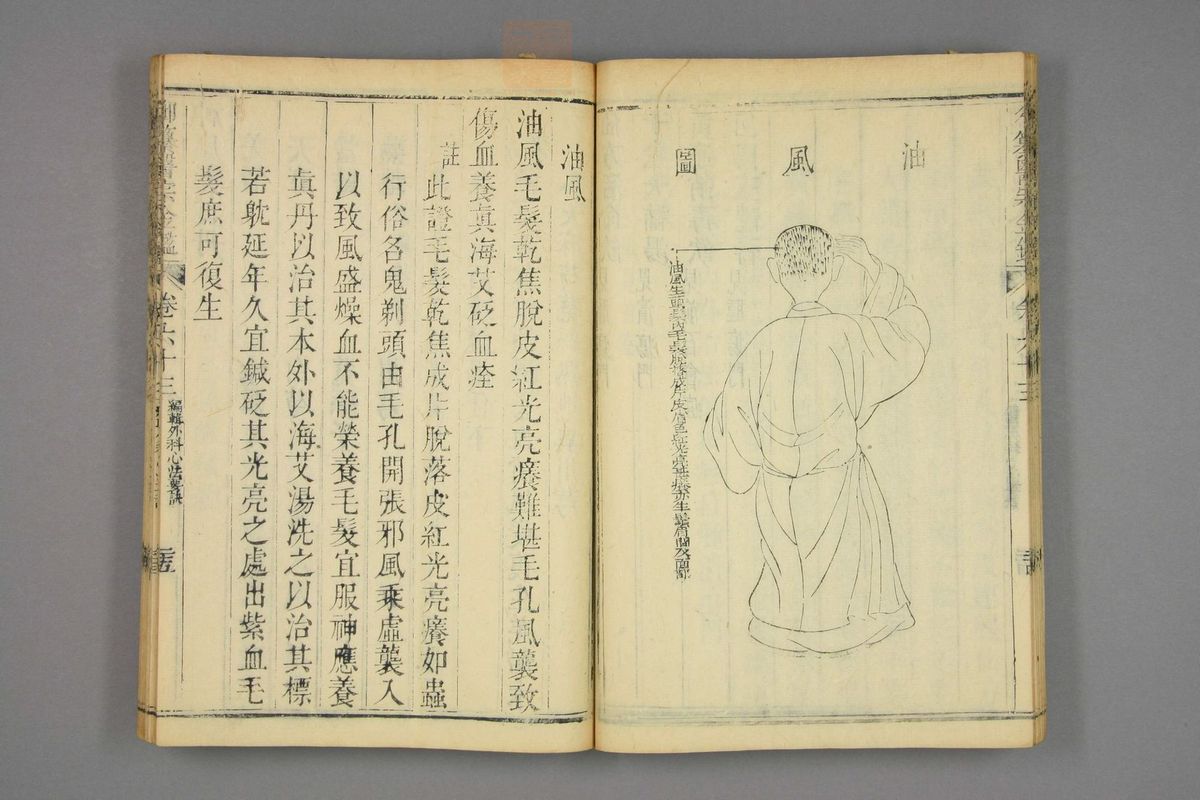 油風圖
油風生頭髮內毛髮脫落成片皮膚色紅光亮癢亦生鬚眉間及面部
油風
油風毛髮乾焦脫皮紅光亮癢難堪毛孔風襲致
傷血養真海艾砭血痊
註此證毛髮乾焦成片脫落皮紅光亮癢如蟲
行俗名鬼剃頭由毛孔開張邪風乘虛襲入
以致風盛燥血不能榮養毛髮宜服神應養
真丹以治其本外以海艾湯洗之以治其標
若躭延年久宜鍼砭其光亮之處出紫血毛
髮庶可復生
卷六十三
編輯外科心法要訣